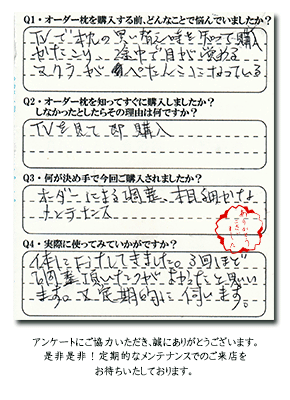 Q1・オーダー枕を購入する前、どんなことで悩んでいましたか?
TVで枕の買い替え時を知って購入
かたこり、途中で目が覚める
マクラがぺたんこになっている。
Q2・オーダー枕を知ってすぐに購入しましたか?
しなかったとしたらその理由は何ですか?
TVを見て即購入
Q3・何が決め手で今回ご購入されましたか?
オーダーによる調整、きめ細かな
メンテナンス
ありがとうございました
Q4・実際に使ってみていかがですか?
体にFitしてきました。3回ほど
調整頂いたのがよかったと思い
ます。又定期的に伺います。
アンケートにご協力いただき、誠にありがとうございます。
是非是非!定期的なメンテナンスでのご来店を
お待ちいたしております。